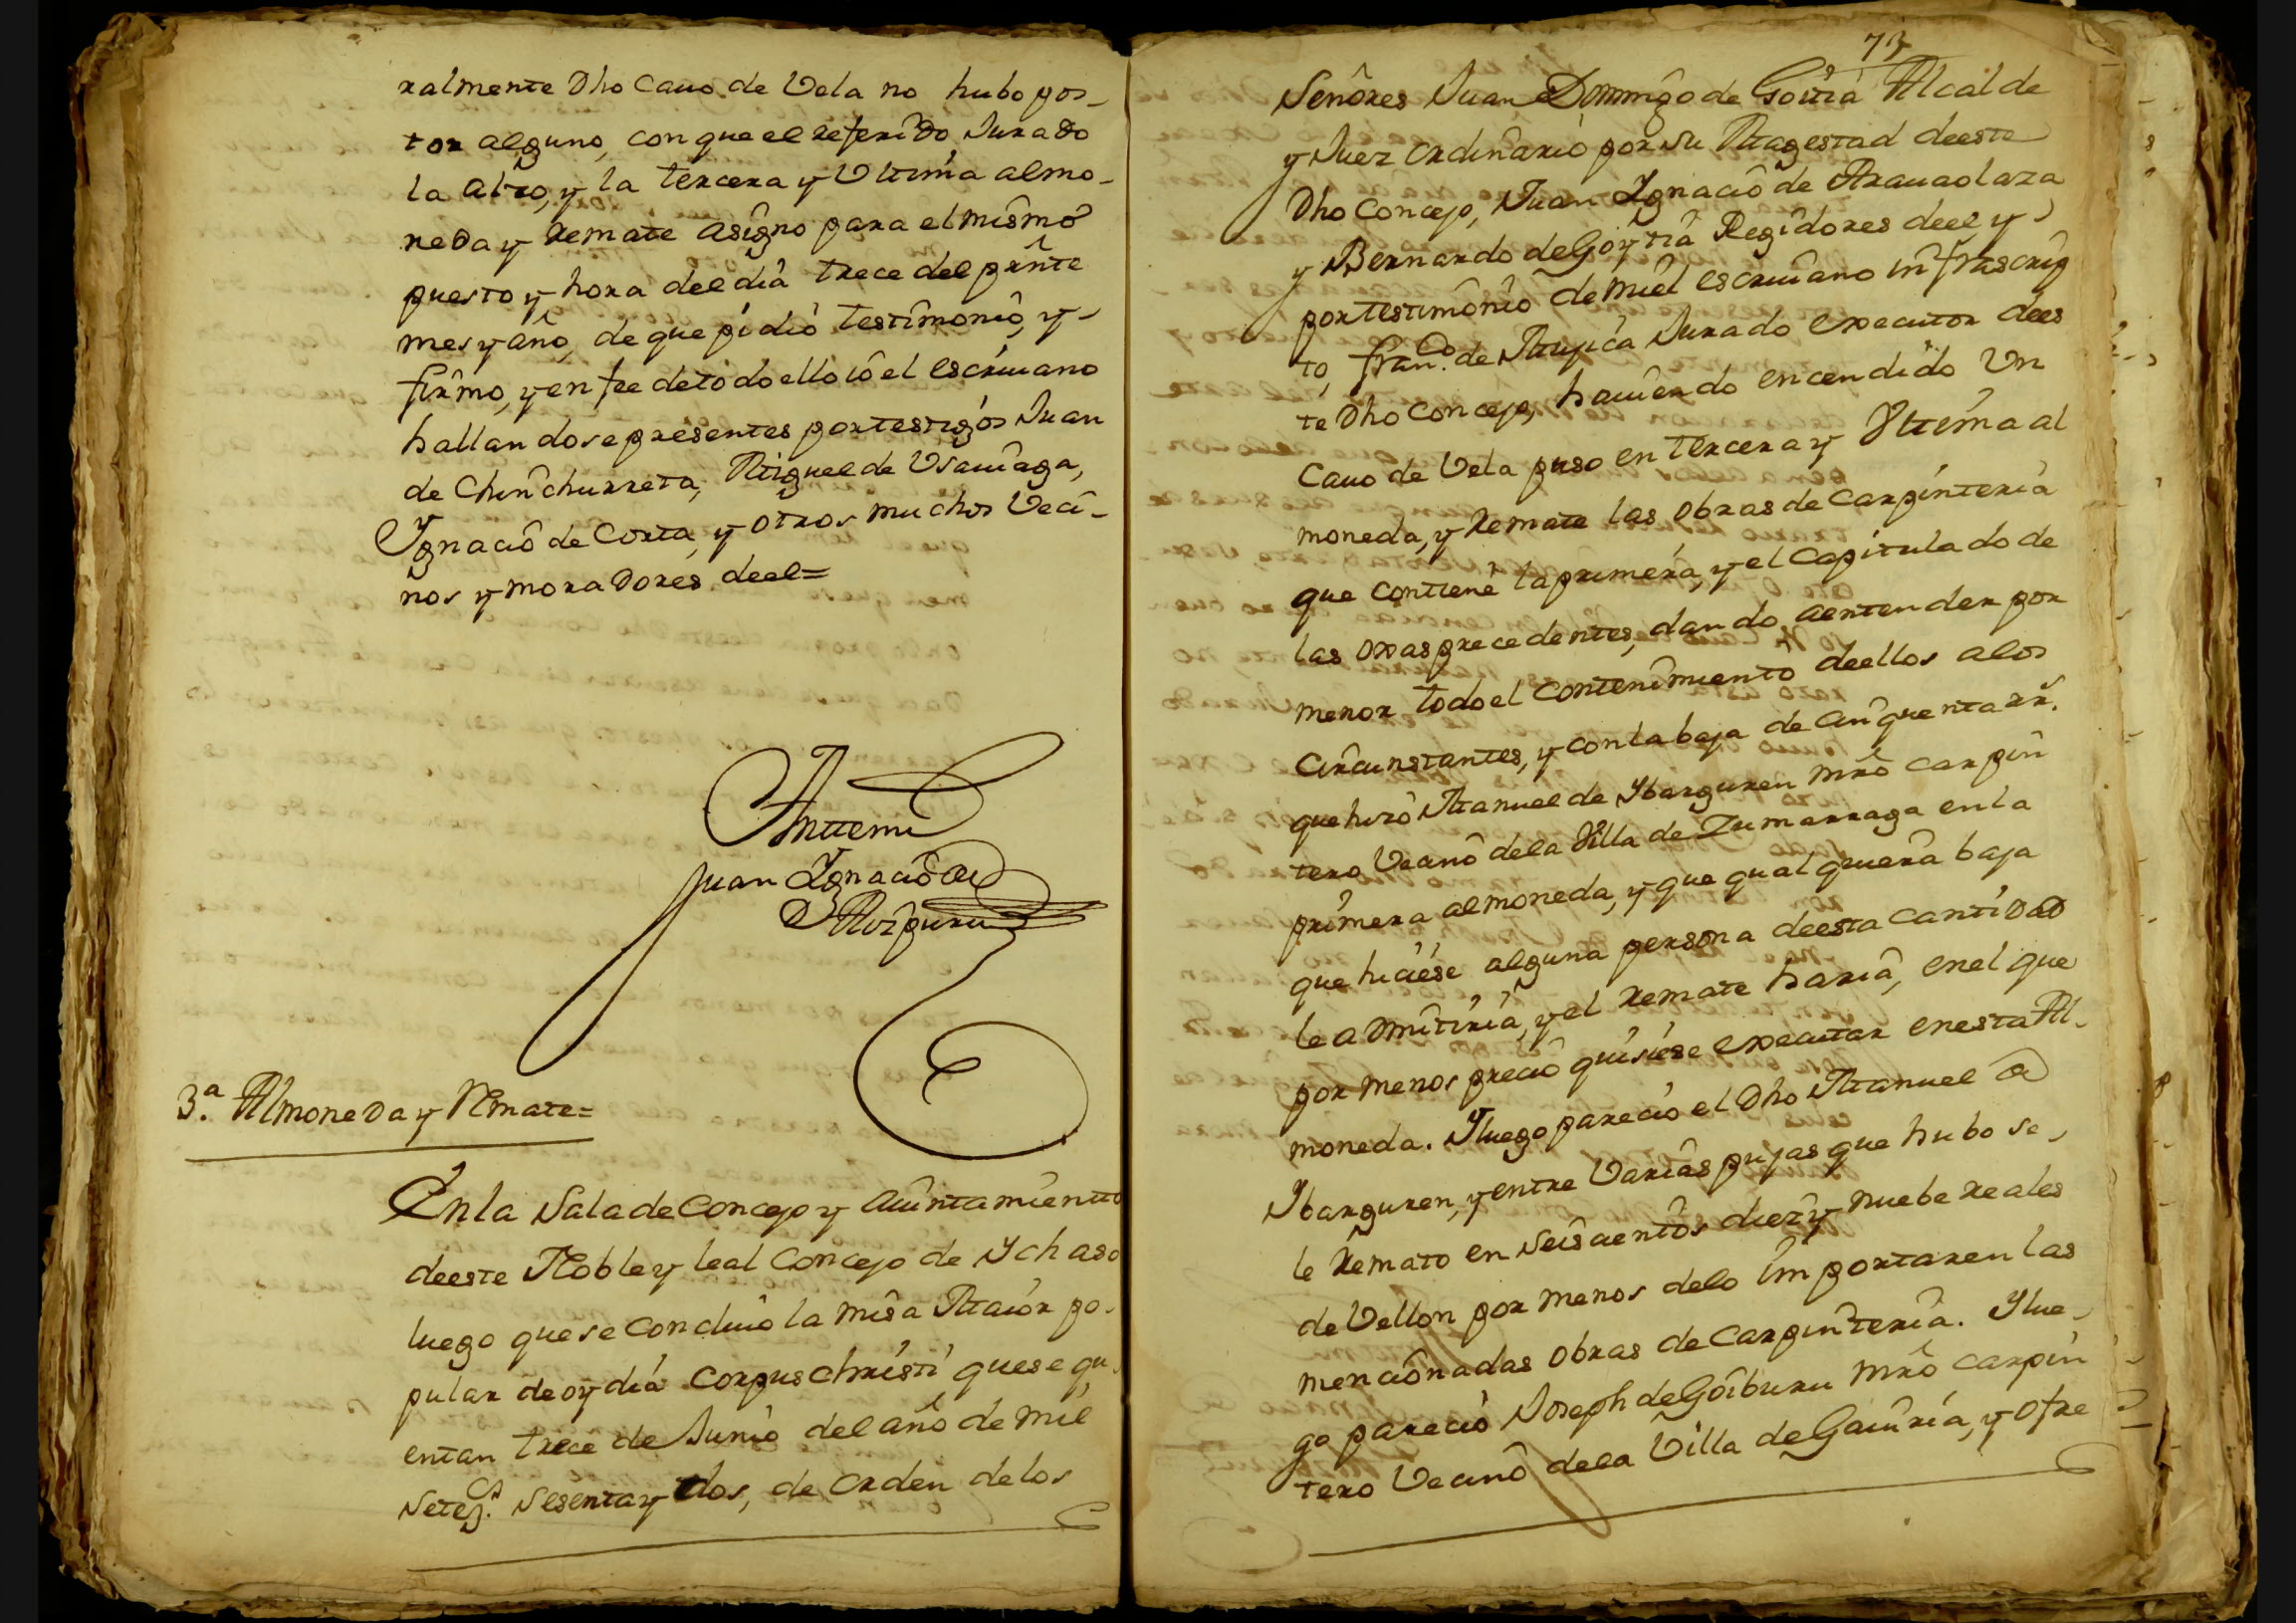 ralmente Dho Cauo de Vela no hubo pos-
tor alguno, con que el referido Jurado
la alzo, y la tercera y Vltima almo-
neda y Remate asigno para el mismo
puesto y hora del dia trece del prnte
mes y año, de que pidio testimonio, y
firmo, y en fee de todo ello io el escriuano
hallandose presentes por testigos Juan
de Chinchurreta, Miguel de Vsauiaga,
Ygnacio de Corta, y otros muchos Veci-
nos y moradores deel=
Anttemi
Juan Ygnacio de
Aizpuru
3.a Almoneda y Remate=
En la Sala de Concejo y Aiuntamiento
deeste Noble y leal Concejo de Ychaso
luego que se concluio la misa Maior po-
pular de oy dia Corpus Christi que se qu-
entan trece de Junio del año de mil
Setez.s Sesenta y dos, de orden de los
73
Señores Juan Domingo de Goitia Alcalde
y Juez ordinario por su Magestad deeste
Dho Concejo, Juan Ygnacio de Arauaolaza
y Bernardo de Goytia Regidores deel y
por testimonio de mi el escriuano infrascrip
to, Fran.co de Mujica Jurado executor dees
te Dho Concejo, hauiendo encendido Vn
Cauo de Vela puso en tercera y Vltima al
moneda, y Remate las obras de Carpinteria
que contiene la primera, y el Capitulado de
las oxas precedentes, dando aentender por
menor todo el contenimiento deellos alos
circunstantes, y con la baja de cinquenta rr.s
que hizo Manuel de Ybarguren mro carpin
tero Vecino dela Villa de Zumarraga en la
primera almoneda, y que qualquiera baja
que hiciese alguna persona deesta cantidad
le admitiria, y el Remate haria, en el que
por menos precio quisiese executar en esta Al-
moneda. Y luego parecio el Dho Manuel de
Ybarguren, y entre Varias pujas que hubo se
le Remato en Seiscientos diez y nuebe reales
de Vellon por menos delo importaren las
mencionadas obras de Carpinteria. Y lue-
go parecio Joseph de Goiburu mro carpin
tero Vecino dela Villa de Gauiria, y ofre